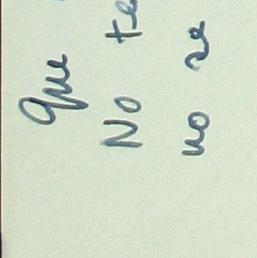 que
No te
no se